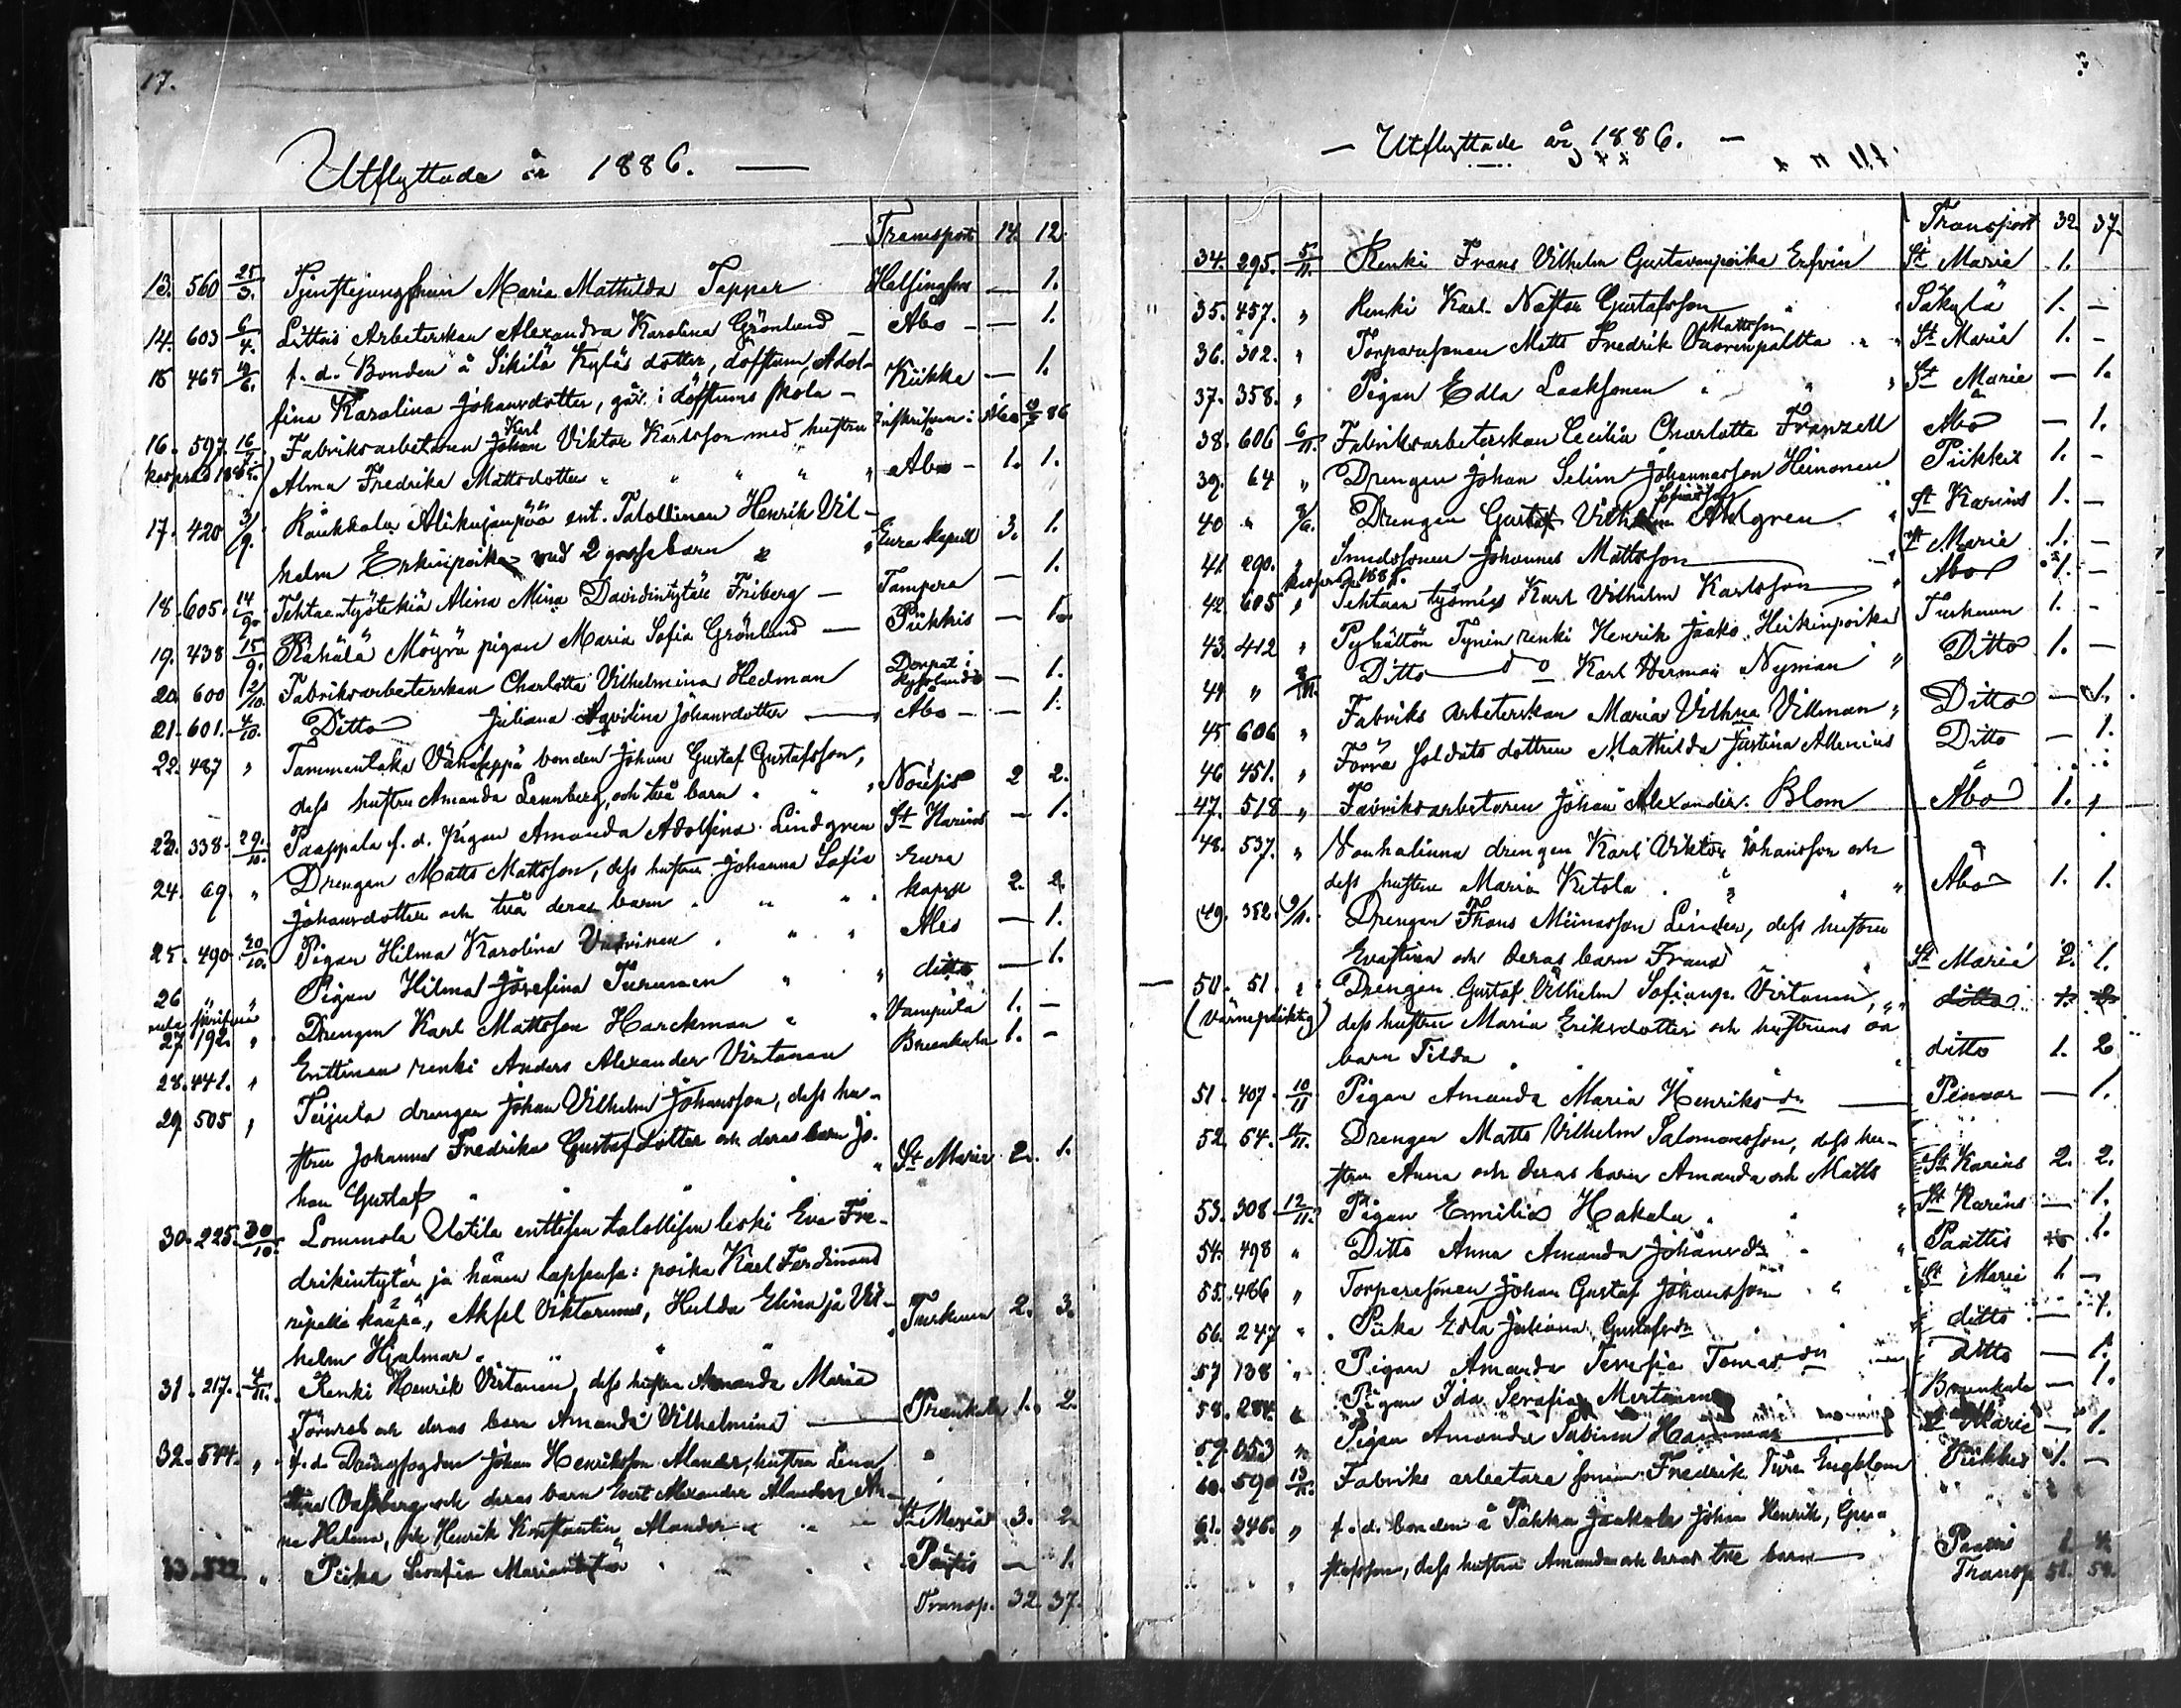 17.
Utflyttade år 1886. —
Transport 14. 12.
13. 560 25/3. Tjenstejungfrun Maria Mathilda Tapper Helsingfors — 1.
14. 603 6/4. Littois Arbeterskan Alexandra Karolina Grönlund — Åbo — — 1.
15 465 /6. f. d. Bonden å Sikilä Kyläs dotter, döfstum, Adol-
fina Karolina Johansdotter, går i döfstums skola — Kiikka — 1.
16. 597. 16/ Fabriksarbetaren Johan Karl Viktor Karlsson med hustru Inskrifven i Åbo 86
Alma Fredrika Mattsdotter " " " " Åbo — 1. 1.
17. 420 3/9. Raukkala Alikujanpää ent. Talollinen Henrik Vil-
helm Erkinpoika med 2 gossebarn " " Eura kapell 3. 1.
18. 605. 14/9. Tehtaantyötekiä Alina Mina Davidintytär Friberg — Tampere — 1.
19. 438 15/9. Rähälä Möyrä pigan Maria Sofia Grönlund — Piikkis — 1.
20. 600 12/10. Fabriksarbeterskan Charlotta Vilhelmina Hedman Dorpat i Ryssland — 1.
21. 601. 4/10. Ditto Juliana Aqvilina Johansdotter — Åbo — — 1.
22. 487 " Tammentaka Vanhappä bonden Johan Gustaf Gustafsson,
dess hustru Amanda Lennberg, och två barn " " " Nousis 2 2.
23. 338. 29./10. Paappala f. d. pigan Amanda Adolfina Lindgren St Karins — 1.
24. 69. " Drengen Matts Mattsson, dess hustru Johanna Sofia Eura
Johansdotter och två deras barn " " " kapell 2. 2.
25. 490. 20/10. Pigan Hilma Karolina " " Ales — 1.
26 " Pigan Hilma Josefina Turunen " " ditto — 1.
27. 192. " Drengen Karl Mattsson Harckman " " Vampula 1. —
28. 441. " Enttinen renki Anders Alexander Virtanen Brunkala 1. —
29 505 , Teijula drengen Johan Vilhelm Johansson, dess hu-
stru Johanna Fredrika Gustafsdotter och deras barn Jo-
han Gustaf " " " " St Marie 2. 1.
30. 225. 30/10. Lommola Uotila enttisen talollisen leski Eva Fre-
drikintytär ja hänen lapsensa: poika Karl Ferdinand
Aksel Viktorinus, Hulda Elina ja Vil-
helm Hjalmar. " " Turkuun 2. 3.
31. 217. 4/11. Renki Henrik Virtanen, dess hustru Amanda Maria
Törnrot och deras barn Amanda Vilhelmina — Prunkala 1. 2.
32. 544. " f. d. Drängfogden Johan Henriksson Alander, hustru Lena
Stina Vassberg och deras barn Evert Alexander Alander, An-
na Helena, och Henrik Konstantin Alander " " St Marie 3. 2.
33. 522. " Piika Serafia Mariantytär " " Pöytis — 1.
Transp. 32. 37.
— Utflyttade år 1886. —
Transport 32. 37.
34. 295. 5/11. Renki Frans Vilhelm Gustavinpoika Enfvin St Marie 1.
35. 457. " Renki Karl Naftor Gustafsson " " Säkylä 1. —
36. 302. " Torparsonen Matts Fredrik Mattsson Vuorenpaltta " " St Marie 1. —
37. 358. " Pigan Edla Laaksonen " " " St Marie — 1.
38. 606 6/11. Fabriksarbeterskan Cecilia Charlotta Franzell Åbo — 1.
39. 64 " Drengen Johan Selim Johannasson Heinonen Piikkis 1. —
40 " Drengen Gustaf Vilhelm Sofiasson Ahlgren " St Karins 1. —
41. 290. " Smedssonen Johannes Mattsson — St Marie 1. —
42. 605 " Tehtaan työmies Karl Vilhelm Karlsson " Åbo 1. —
43. 412 " Pyhältön Tynin renki Henrik Jaakö Heikinpoika Turkuun 1. —
44. " 8/11. Ditto — do Karl Herman Nyman " Ditto 1. —
45 606 " Fabriks arbeterskan Maria Vilhna Villman " Ditto — 1.
46 451. " Förra soldats dottren Mathilda Justina Allenius Ditto — 1.
47. 518 " Fabriksarbetaren Johan Alexander Blom Åbo 1. ,
48. 537. " Vanhalinna drengen Karl Viktor Johansson och
dess hustru Maria Ketola " " Åbo 1. 1.
49. 352. 9/11. Drengen Frans Miinasson Linden, dess hustru
Evastina och deras barn Frans St Marie 2. 1.
50. 51. " Drengen Gustaf Vilhelm Sofianp. Virtanen, " ditto
(värnepliktig) dess hustru Maria Eriksdotter och hustruns oä
barn Tilda " " " ditto 1. 2
51. 407. 10/11 Pigan Amanda Maria Henriksdr — Pemar — 1.
52. 54. /11. Drengen Matts Vilhelm Salomonsson, dess hu-
stru Anna och deras barn Amanda och Matts St Karins 2. 2.
53. 308 12/11. Pigan Emilia Hakala " " St Karins — 1.
54. 498 " Ditto Anna Amanda Johansdr " " Paattis 1.
55. 466 " Torparesonen Johan Gustaf Johansson " " St Marie 1. —
56. 247 " Piika Edla Juliana Gustafsdr " ditto — 1.
57 138 " Pigan Amanda Serafia Tomasdr ditto — 1.
58. " Pigan Ida Serafia Mertanen Brunkala — 1.
59. 353 " Pigan Amanda Sabina St Marie — 1.
60. 590 13/11. Fabriks arbetare sonen Fredrik Ture Engblom Piikkis 1. —
61. 345. " f. d. bonden å Pakka Jaakola Johan Henrik, Gu-
stafsson, dess hustru Amanda och deras tre barn
Transp 51. 54.